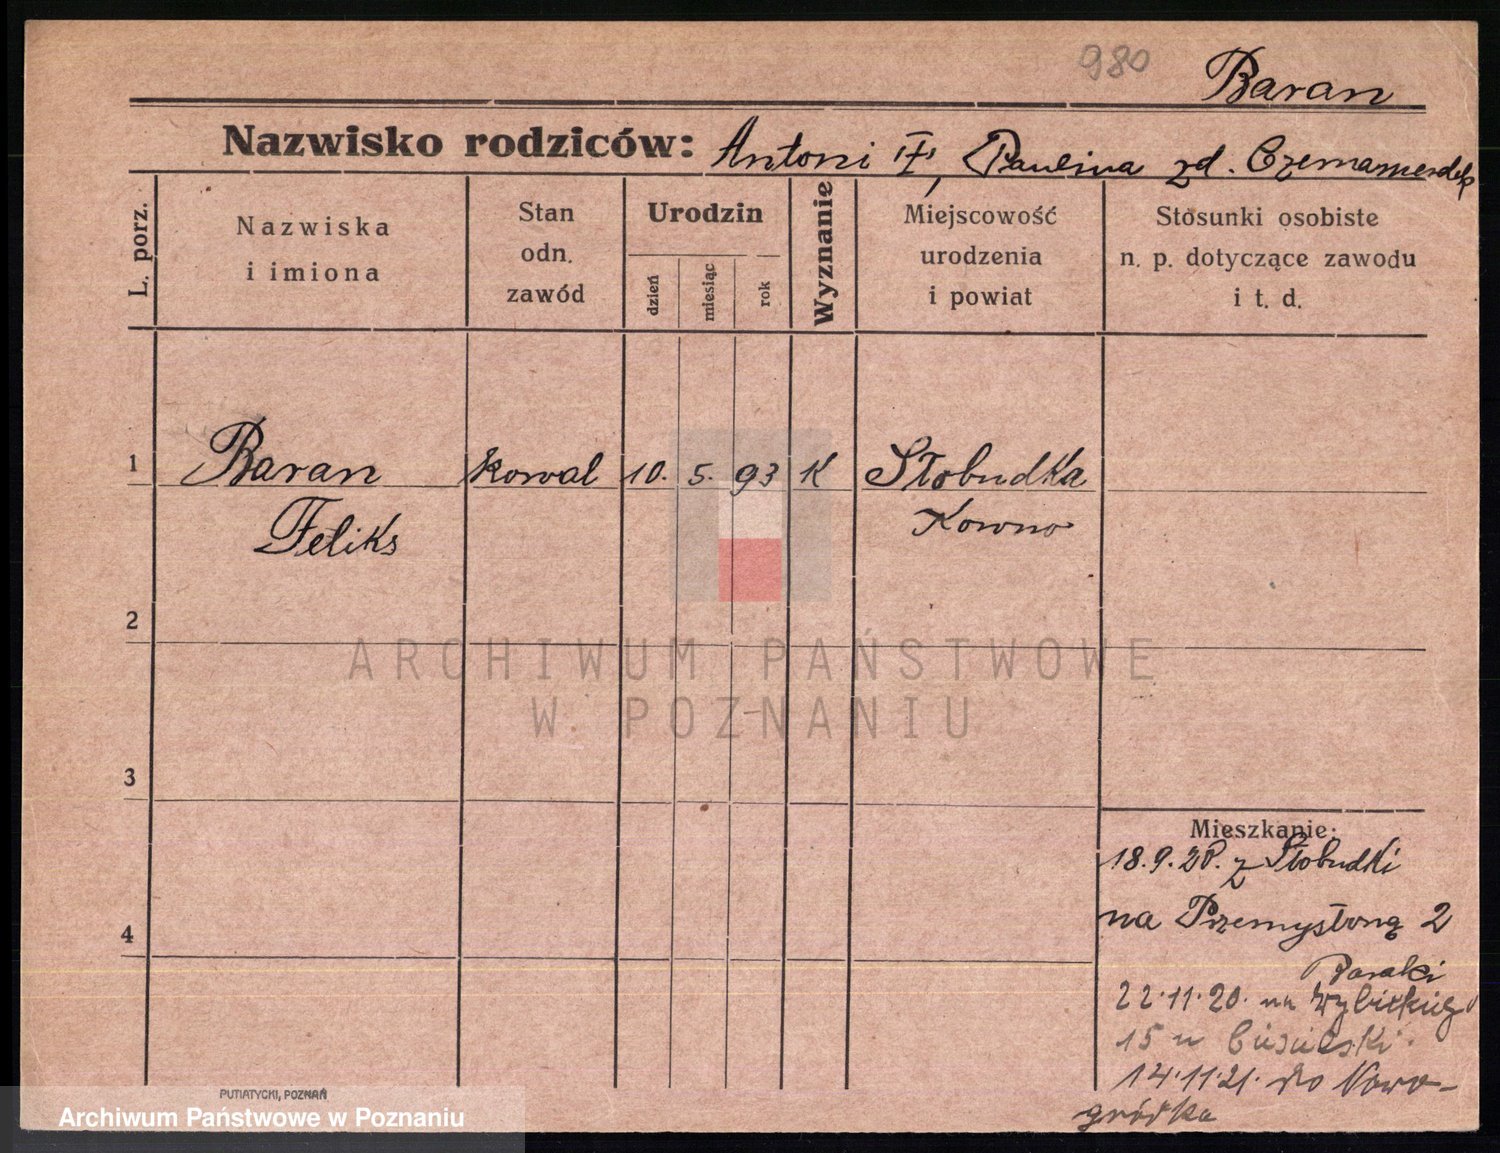 980
Baran
Nazwisko rodziców: Antoni F, Paulina zd.
L. porz.
Nazwiska
i imiona
Stan
odn.
zawód
Urodzin
dzień
miesiąc
rok
Wyznanie
Miejscowość
urodzenia
i powiat
Stosunki osobiste
n. p. dotyczące zawodu
i t. d.
1 Baran kowal 10. 5. 93 K Słobudka
Feliks Kowno
2
3
4
Mieszkanie:
18.9.20. z Słobudki
na Przemysłową 2
Baraki
22.11.20. na
15 u
14.11.21. do Nowo-
gródka
ARCHIWUM PAŃSTWOWE
W POZNANIU
PUTIATYCKI, POZNAŃ
Archiwum Państwowe w Poznaniu